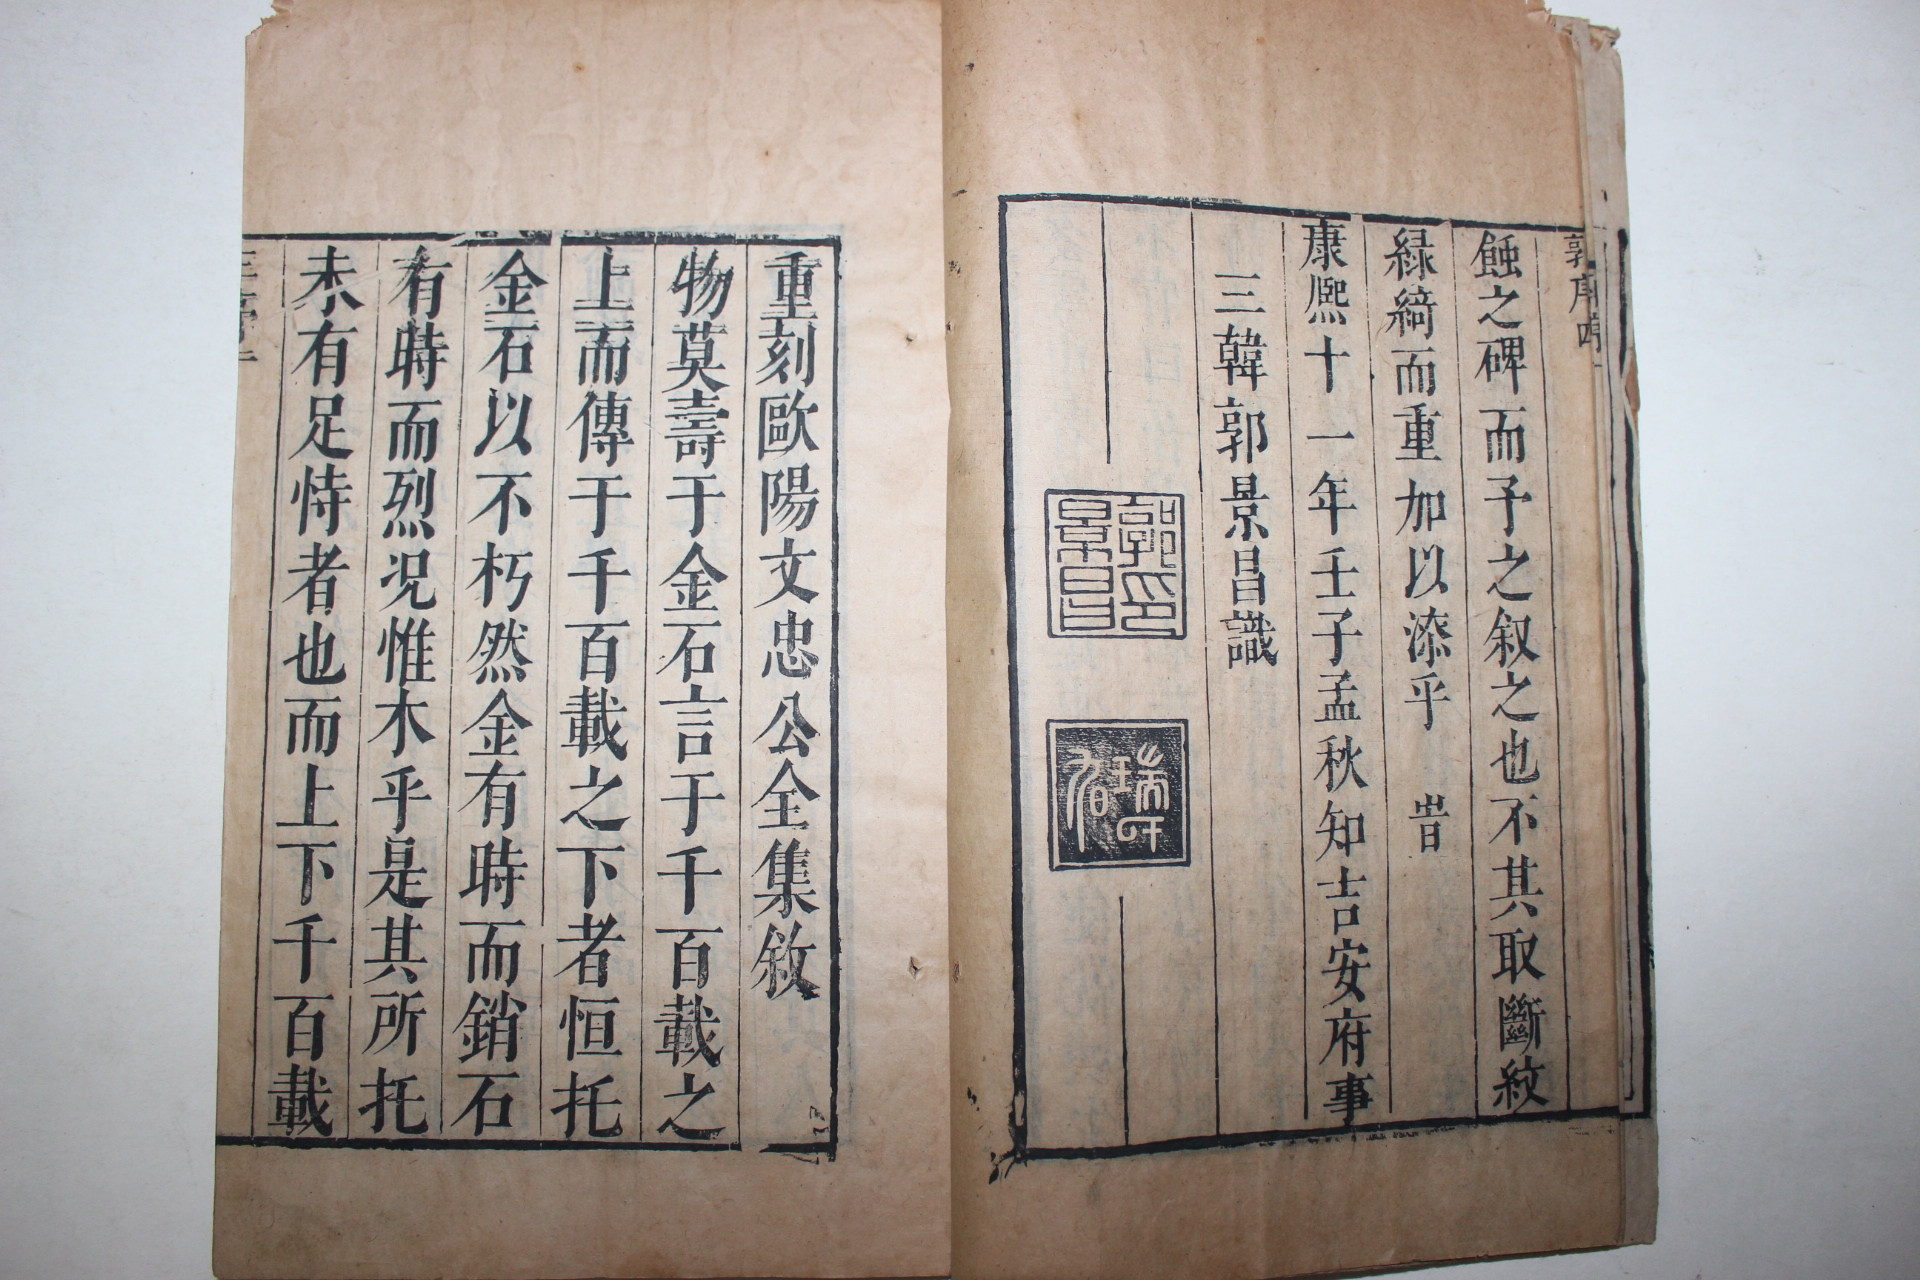 郭序四
蝕之碑而予之叙之也不其取斷紋
緑綺而重加以漆乎 旹
康熙十一年壬子孟秋知吉安府事
三韓郭景昌識
郭印景昌
瑞
重刻歐陽文忠公全集敘
物莫壽于金石言于千百載之
上而傳于千百載之下者恒托
金石以不朽然金有時而銷石
有時而烈况惟木乎是其所托
未有足恃者也而上下千百載